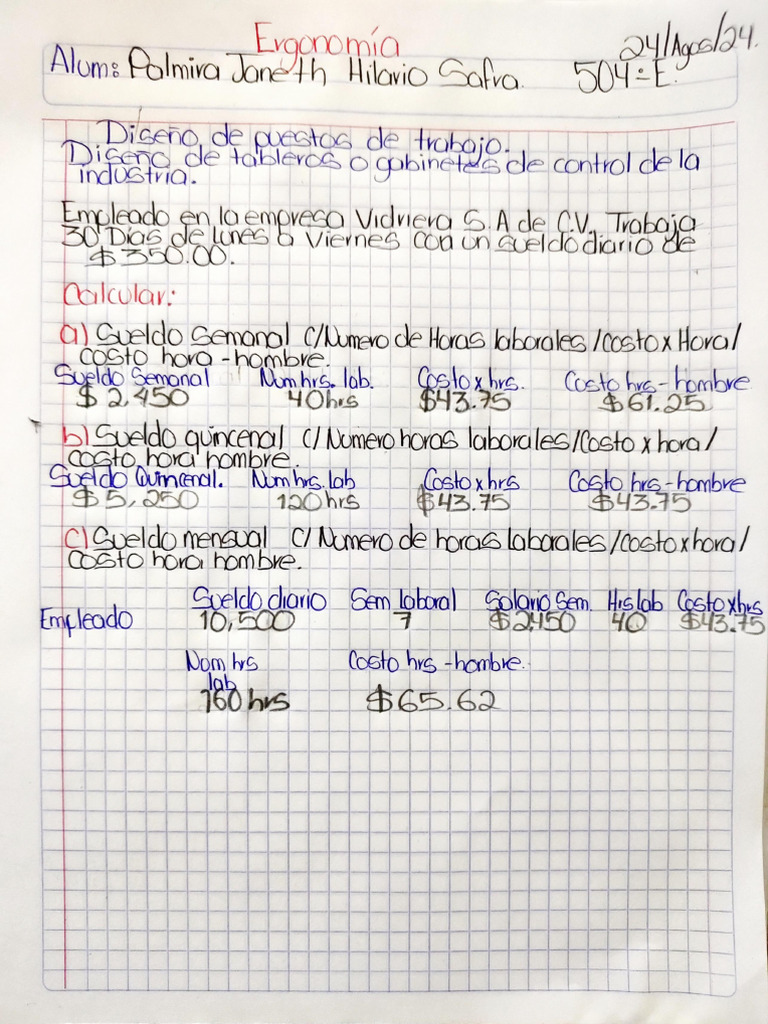 Ergonomía
24/Agos/24.
Alum: Palmira Janeth Hilario Safra. 504-E.
Diseño de puestos de trabajo.
Diseño de tableros o gabinetes de control de la
industria.
Empleado en la empresa Vidriera S.A de C.V., Trabaja
30 Días de lunes a Viernes con un sueldo diario de
$350.00.
Calcular:
a) Sueldo Semanal C/Numero de Horas laborales/costo x Hora/
costo hora - hombre.
Sueldo Semanal Num hrs. lab. Costo x hrs. Costo hrs - hombre
$2,450 40hrs $43.75 $61.25
b) Sueldo quincenal C/Numero horas laborales/Costo x hora/
costo hora hombre.
Sueldo Quincenal. Num hrs. lab Costo x hrs Costo hrs - hombre
$5,250 120hrs $43.75 $43.75
c) Sueldo mensual C/Numero de horas laborales/costo x hora/
costo hora hombre.
Sueldo diario Sem laboral Salario Sem. Hrs lab Costo x hrs
Empleado 10,500 7 $2450 40 $43.75
Nom hrs Costo hrs - hombre.
lab
160hrs $65.62